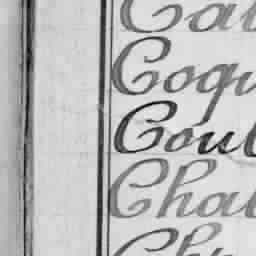 Cal
Coqu
Coul
Chal
Ch